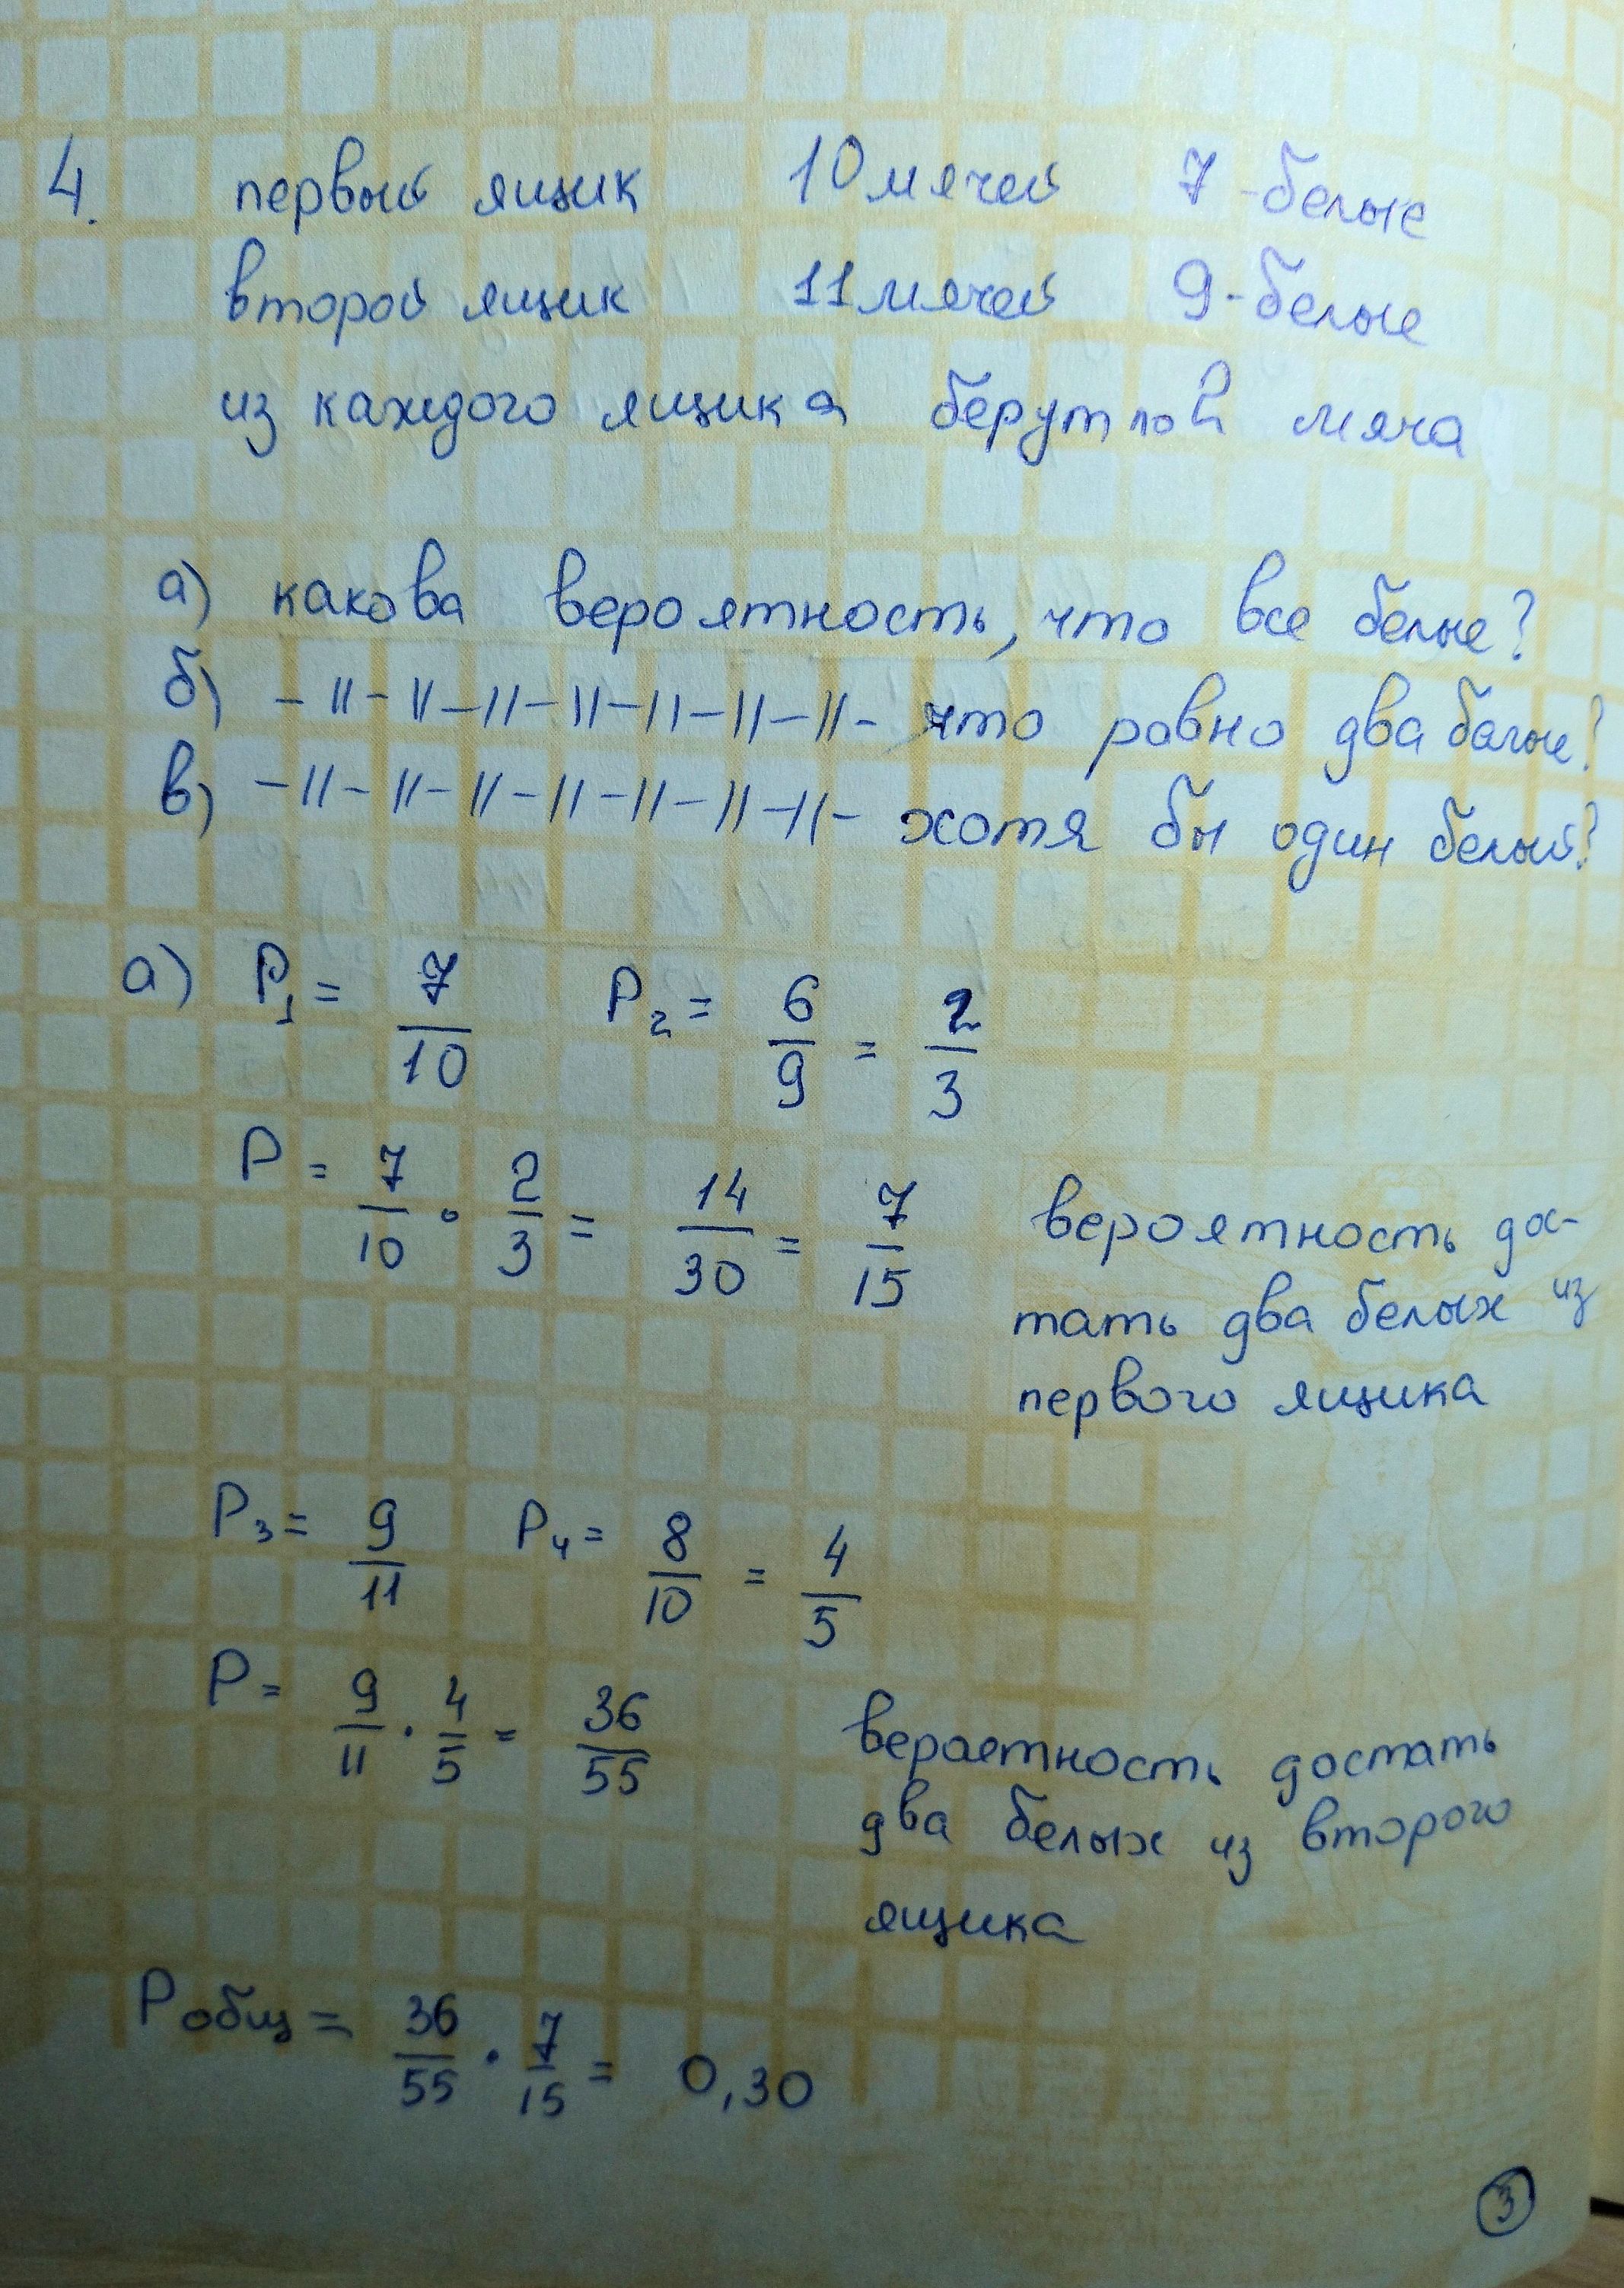 4. первый ящик 10 мячей 7 - белые
второй ящик 11 мячей 9 - белые
из каждого ящика берут по 2 мяча
а) какова вероятность, что все белые?
б) - || - || - || - || - || - || - || - что ровно два белые?
в) - || - || - || - || - || - || - || - хотя бы один белый?
а) P₁ = 7/10 P₂ = 6/9 = 2/3
P = 7/10 · 2/3 = 14/30 = 7/15 вероятность дос-
тать два белых из
первого ящика
P₃ = 9/11 P₄ = 8/10 = 4/5
P = 9/11 · 4/5 = 36/55 вероятность достать
два белых из второго
ящика
Pобщ = 36/55 · 7/15 = 0,30
3